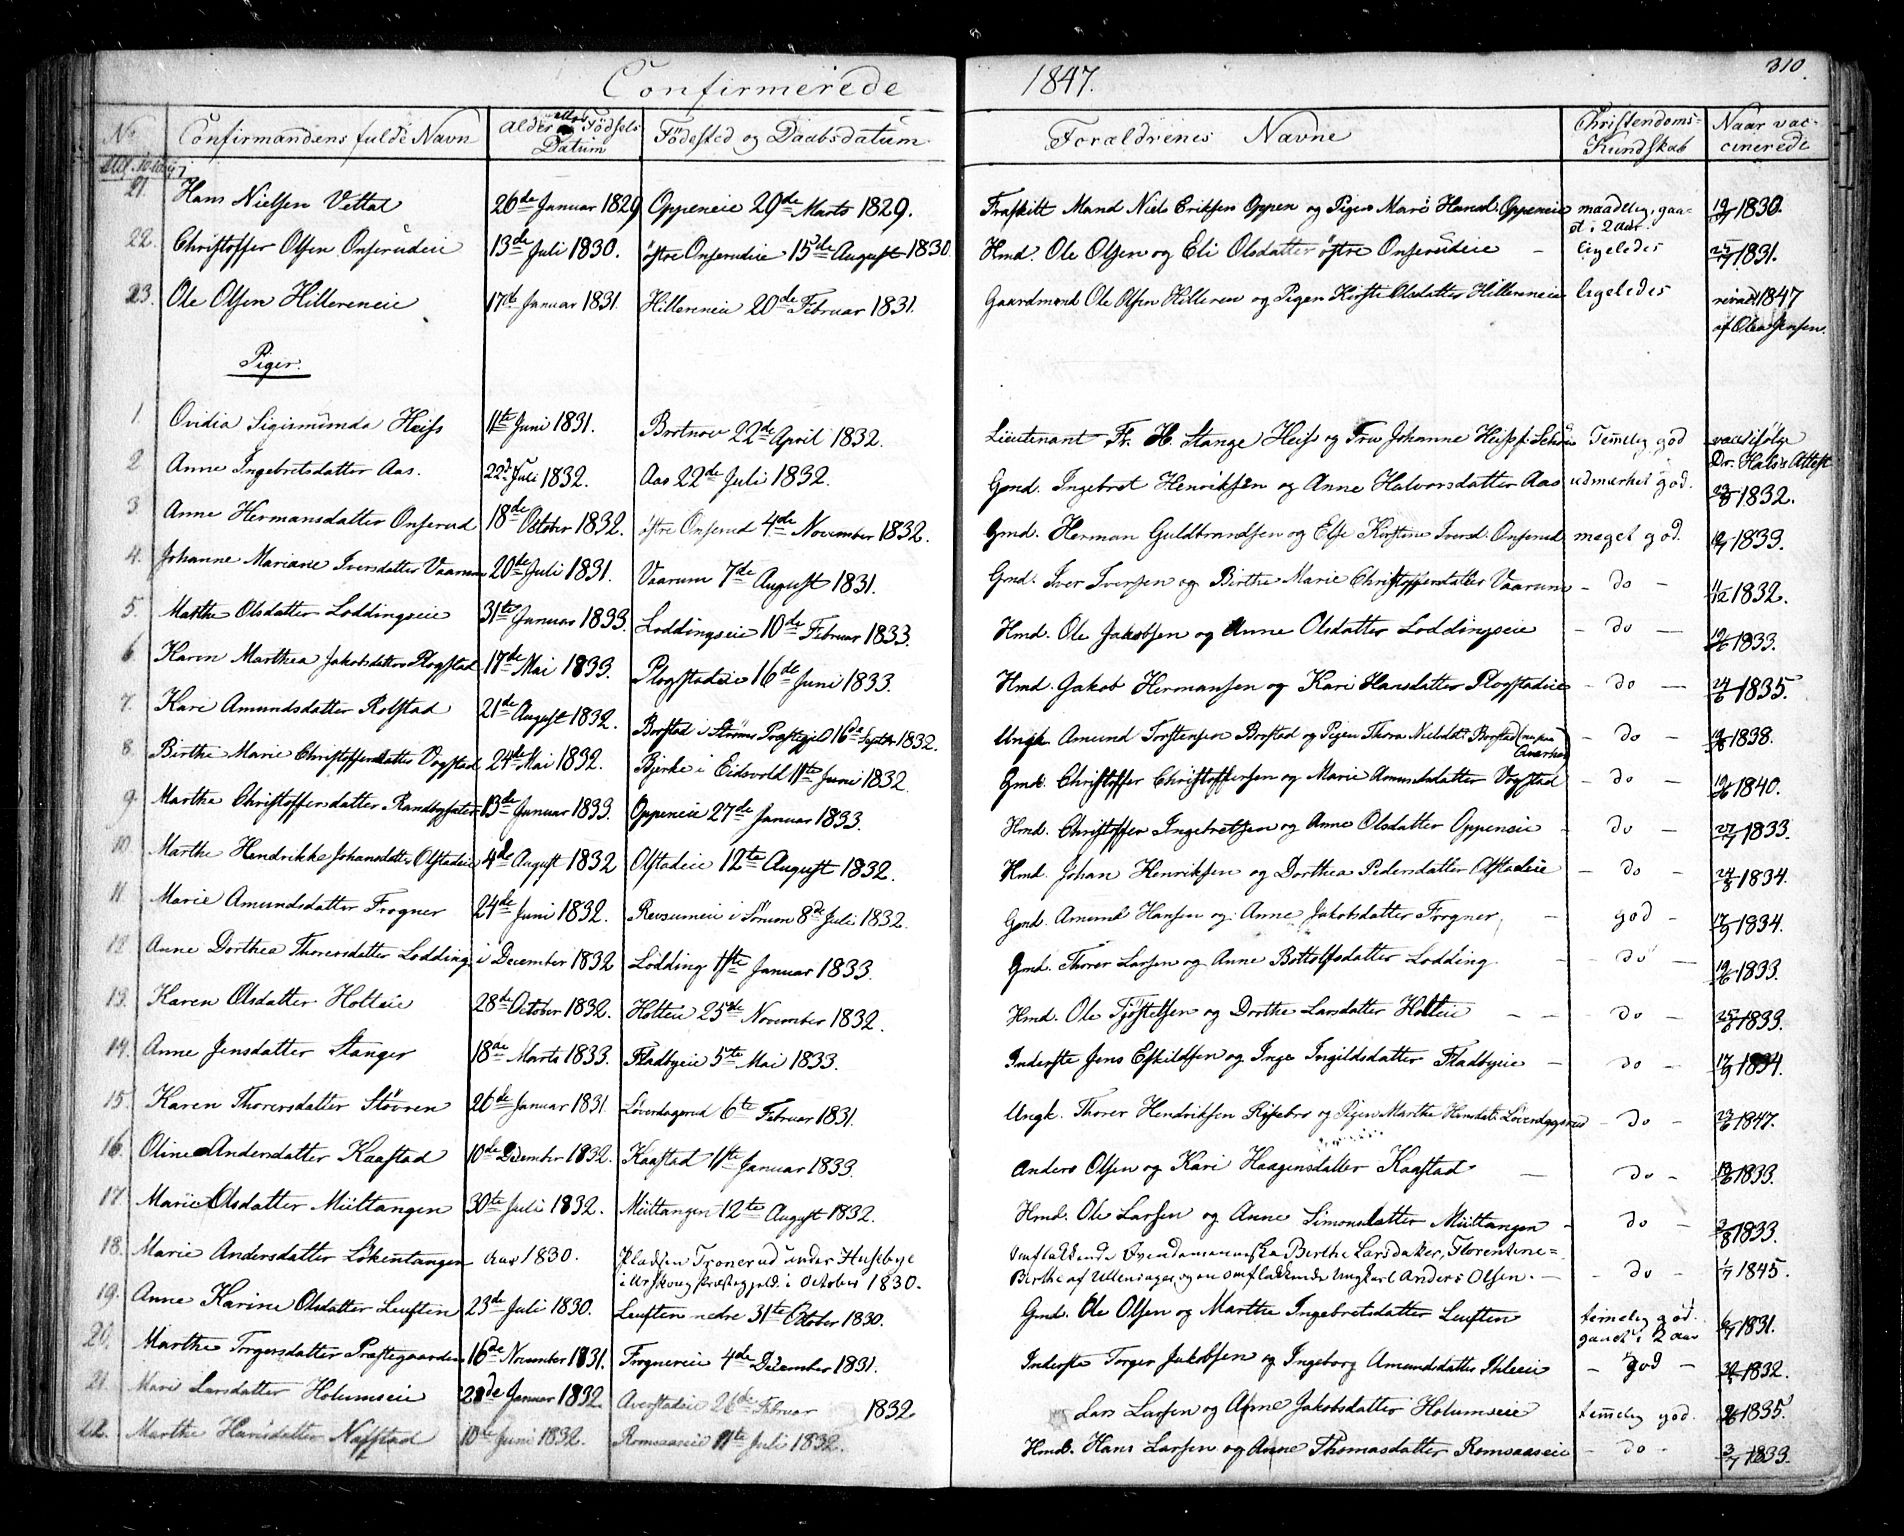 Confirmerede 1847. 310.
No Confirmandens fulde Navn Alder eller Fødsels Datum Fødested og Daabsdatum Forældrenes Navne Christendoms-Kundskab Naar vaccinerede
21. Hans Nielsen Vettal 26de Januar 1829 Oppeneie 29de Marts 1829. Fraskilt Mand Niels Eriksen Oppen og Pigen Mari Hansd. Oppeneie maadelig, gaaet i 2 Aar 1830.
22. Christoffer Olsen Onserudeie 13de Juli 1830. östre Onserudeie 15de August 1830 Hmd. Ole Olsen og Eli Olsdatter östre Onserudeie ligeledes 1831.
23. Ole Olsen Hillereneie 17de Januar 1831. Hillereneie 20de Februar 1831. Gaardmand Ole Olsen Hilleren og Pigen Kirsti Olsdatter Hillereneie ligeledes 1847 af Olea Jensen.
Piger.
1. Ovidia Sigismunda Heiss 11te Juni 1831. 22de April 1832. Lieutenant Fr. H. Stange Heiss og Fru Johanne Heiss f. Temelig god vacc. ifölge Dr. Attest
2 Anne Ingebretsdatter Aas. 22de Juli 1832. Aas 22de Juli 1832. Gmd. Ingebret Henriksen og Anne Halvorsdatter Aas udmærket god. 1832.
3 Anne Hermansdatter Onserud 18de October 1832. östre Onserud 4de November 1832. Gmd. Herman Guldbrandsen og Else Kirstine Iversd. Onserud meget god. 1833.
4. Johanne Mariane Iversdatter Vaarum 20de Juli 1831. Vaarum 7de August 1831. Gmd. Iver Iversen og Birthe Marie Christoffersdatter Vaarum - do - 1832.
5. Marthe Olsdatter Loddingseie 31te Januar 1833. Loddingseie 10de Februar 1833. Hmd. Ole Jakobsen og Anne Olsdatter Loddingseie - do - 1833.
6 Karen Marthea Jakobsdatter Plogstad 17de Mai 1833. Plogstadeie 16de Juni 1833. Hmd. Jakob Hermansen og Kari Hansdatter Plogstadeie - do - 1835.
7. Kari Amundsdatter Rolstad 21de August 1832. Borstad i Strøms Præstegjeld 16de Septbr 1832. Ungk. Amund Torstensen Borstad og Pigen Thora Nielsdt. Borstad - do - 1838.
8. Birthe Marie Christoffersdatter Vogstad 24de Mai 1832. Bjerke i Eidsvold 11te Juni 1832. Gmd. Christoffer Christoffersen og Marie Amundsdatter Vogstad - do - 1840.
9. Marthe Christoffersdatter 13de Januar 1833. Oppeneie 27de Januar 1833. Hmd. Christoffer Ingebretsen og Anne Olsdatter Oppeneie - do - 1833.
10. Marthe Hendrikke Johansdatter Olstadeie 4de August 1832 Olstadeie 12te August 1832. Hmd. Johan Henriksen og Dorthea Pedersdatter Olstadeie - do - 1834.
11. Marie Amundsdatter Frogner 24de Juni 1832. i Sörum 8de Juli 1832. Gmd. Amund Hansen og Anne Jakobsdatter Frogner, - god - 1834.
12 Anne Dorthea Thorersdatter Lodding i December 1832 Lodding 1ste Januar 1833. Gmd. Thorer Larsen og Anne Bottolfsdatter Lodding - do - 1833.
13. Karen Olsdatter Holteie 28de October 1832. Holteie 25de November 1832. Hmd. Ole Tjöstelsen og Dorthe Larsdatter Holteie - do - 1833.
14. Anne Jensdatter Stanger 18de Marts 1833. Fladbyeie 5te Mai 1833. Inderste Jens Eskildsen og Inge Ingildsdatter Fladbyeie - do - 1834.
15. Karen Thorersdatter Stövren 26de Januar 1831 Löverdagsrud 6te Februar 1831. Ungk. Thorer Hendriksen Risebro og Pigen Marthe Hansdat. Löverdagsrud - do - 1847.
16. Oline Andersdatter Kaastad 10de December 1832. Kaastad 1ste Januar 1833. Anders Olsen og Kari Haagensdatter Kaastad - do - 1833.
17 Marie Olsdatter Müttangen 30te Juli 1832. Müttangen 12te August 1832. Hmd. Ole Larsen og Anne Simonsdatter Müttangen - do - 1833.
18. Marie Andersdatter Lökentangen Aar 1830. Pladsen Tronerud under Husebye i Urskoug Præstegjeld i October 1830. Omflakkende Birthe Larsdatter, Florentine-Birthe af Ullensager, og en omflakkende Ungkarl Anders Olsen. - do - 1/7 1845.
19. Anne Karine Olsdatter Leuften 23de Juli 1830. Leuften nedre 31te October 1830. Gmd. Ole Olsen og Marthe Ingebretsdatter Leuften temelig god. gaaet i 2 Aar 1831.
20. Marthe Torgersdatter Præstegaarden 16de November 1831. Frognereie 4de December 1831. Inderste Torger Jakobsen og Ingeborg Amundsdatter - god - 1832.
21 Mari Larsdatter Holumseie 28de Januar 1832. Averstadeie 26de Februar 1832. Lars Larsen og Anne Jakobsdatter Holumseie temelig god. 1835.
22. Marthe Hansdatter Nafstad 10de Juni 1832. Romsaaeie 11te Juli 1832. Hmd. Hans Larsen og Anne Thomasdatter Romsaaseie - do - 3/7 1833.